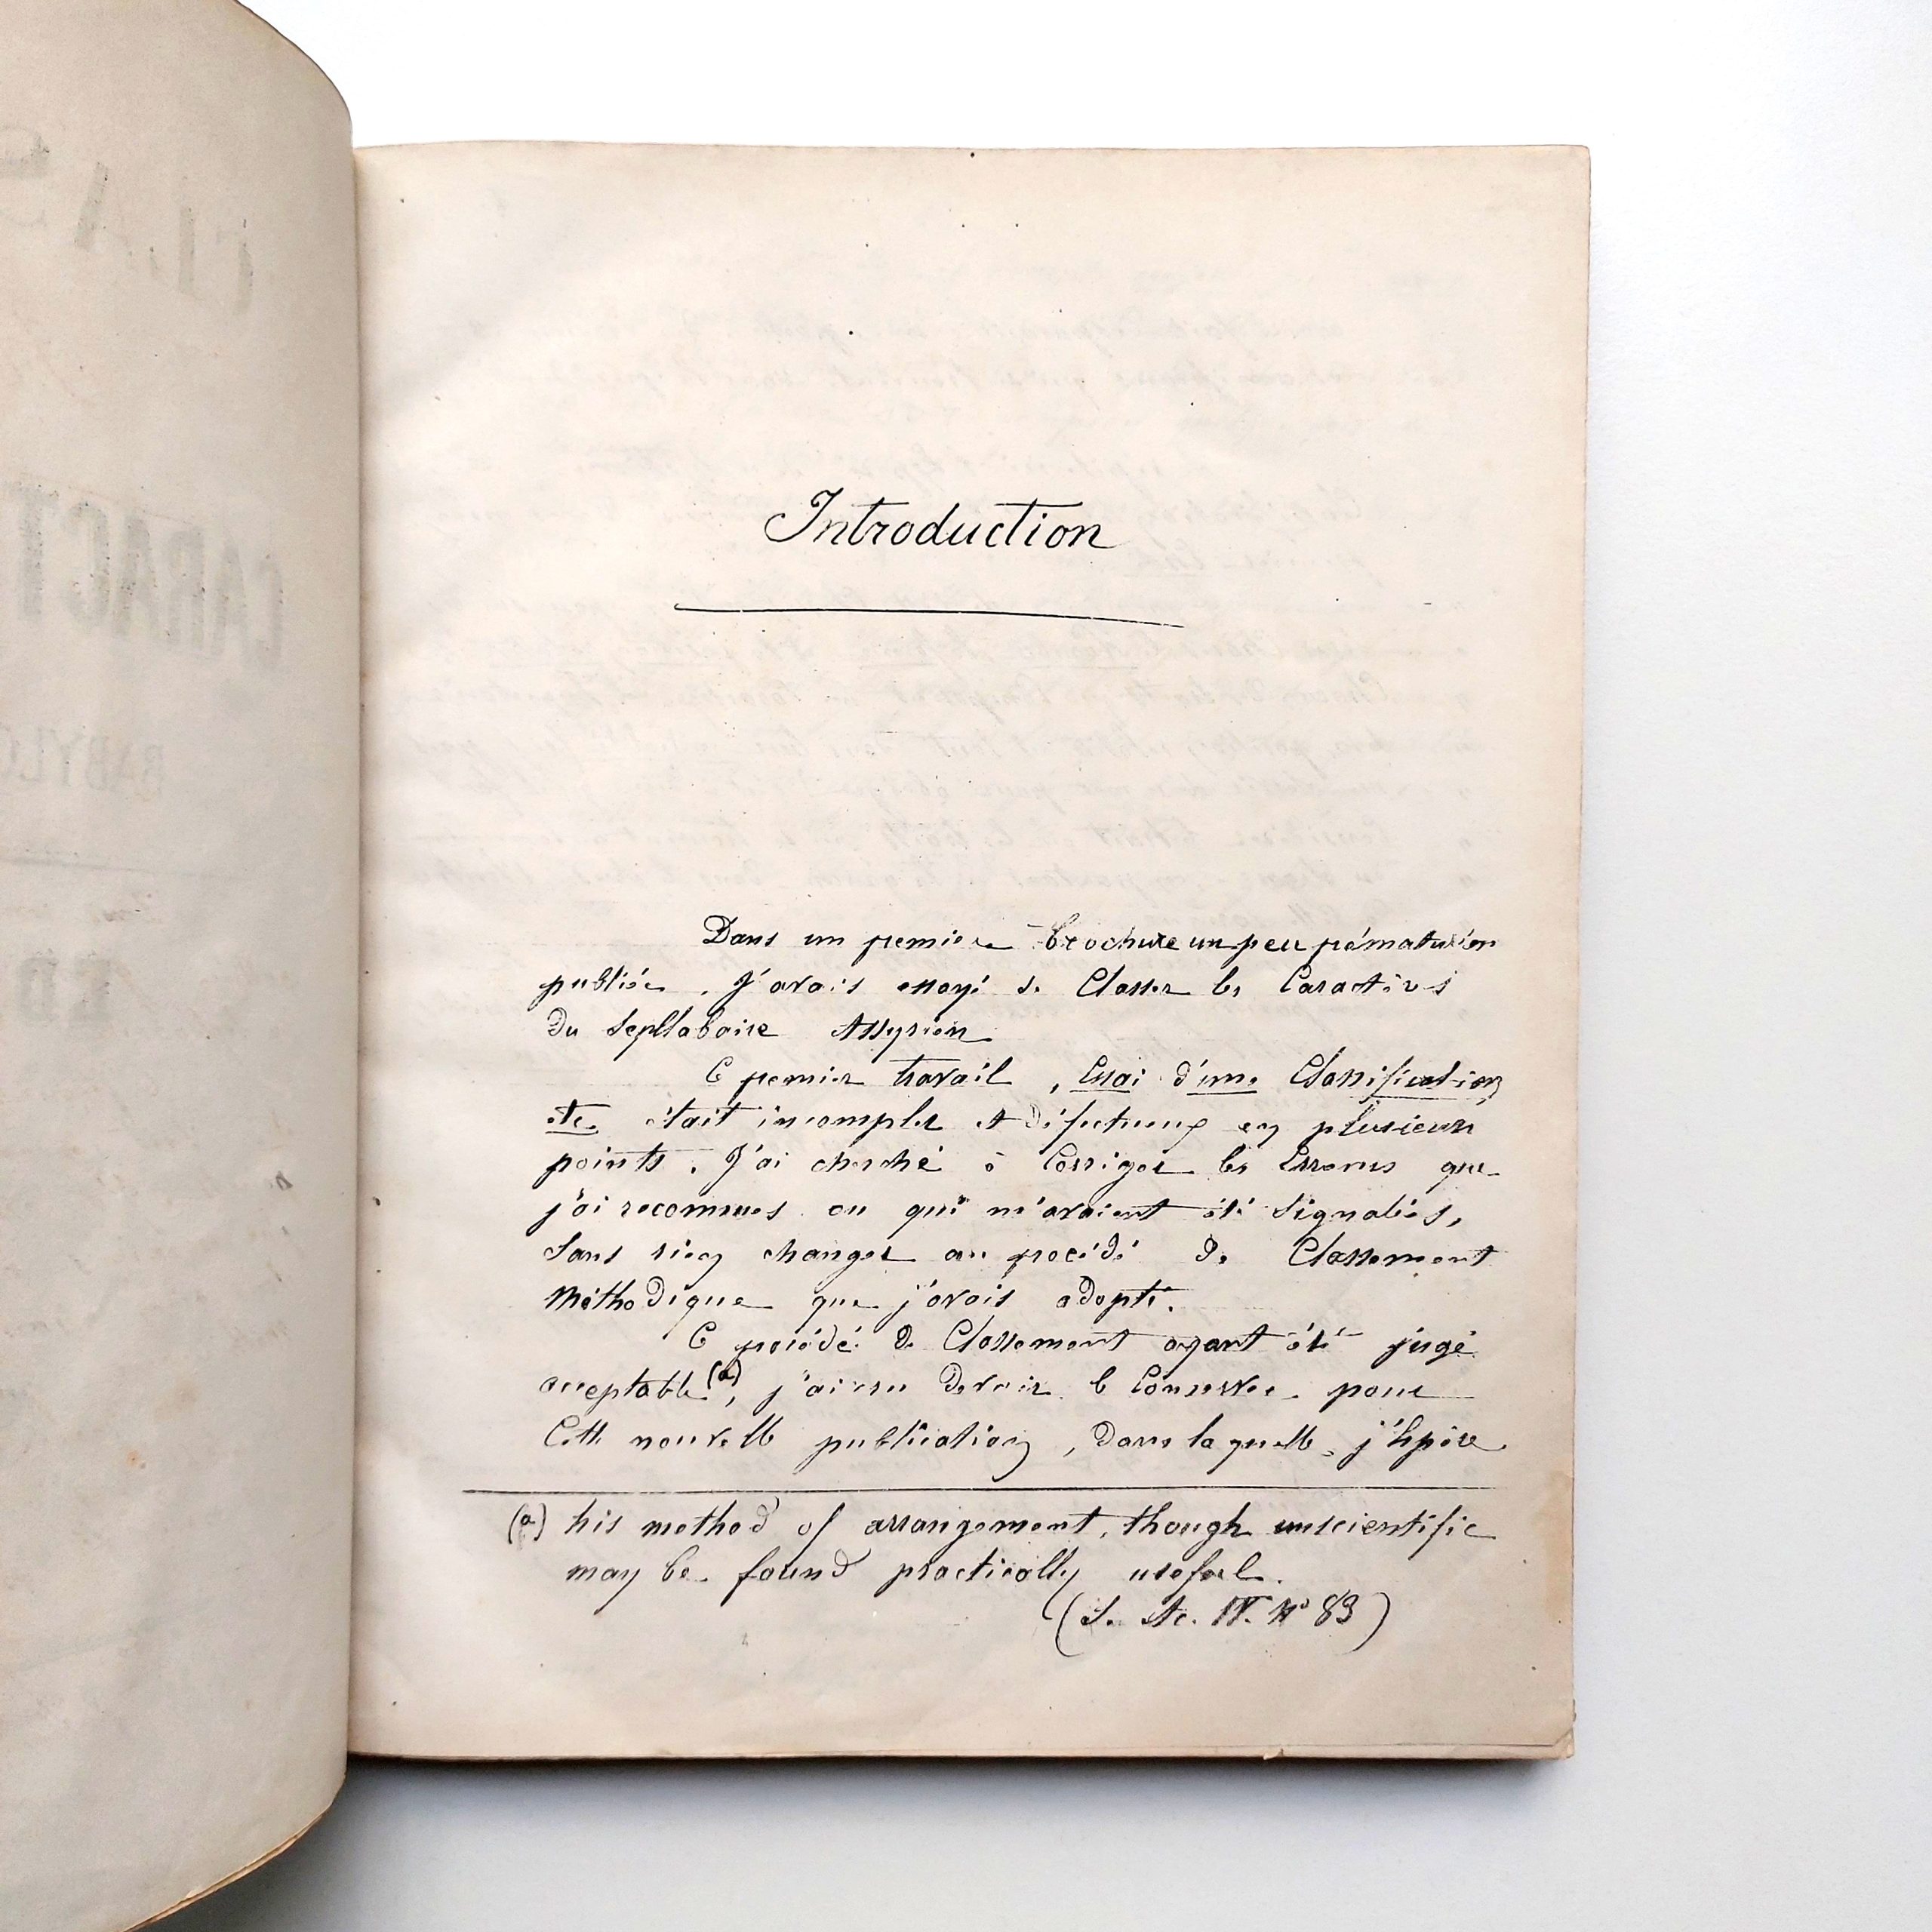 Introduction
Dans un premiere brochure un peu prématurém
publiée, J'avais essayé de Classer les Caractères
Du Sepllabaire Assyrien
Ce premier travail, Essai d'une Classification
etc. était incomplet et défectueux en plusieurs
points. J'ai cherché à Corriger les Erreurs que
j'ai reconnues ou qui m'avaient été Signalées,
Sans rien changer au procédé de Classement
Méthodique que j'avais adopté.
Ce procédé de Classement ayant été jugé
acceptable (a), j'ai cru Devoir le Conserver pour
Cette nouvelle publication, Dans laquelle j'Espère
(a) his method of arrangement, though unscientific
may be found practically useful.
(S. Ac. IV. No 83)
CLAS
CARACT
BABYLO